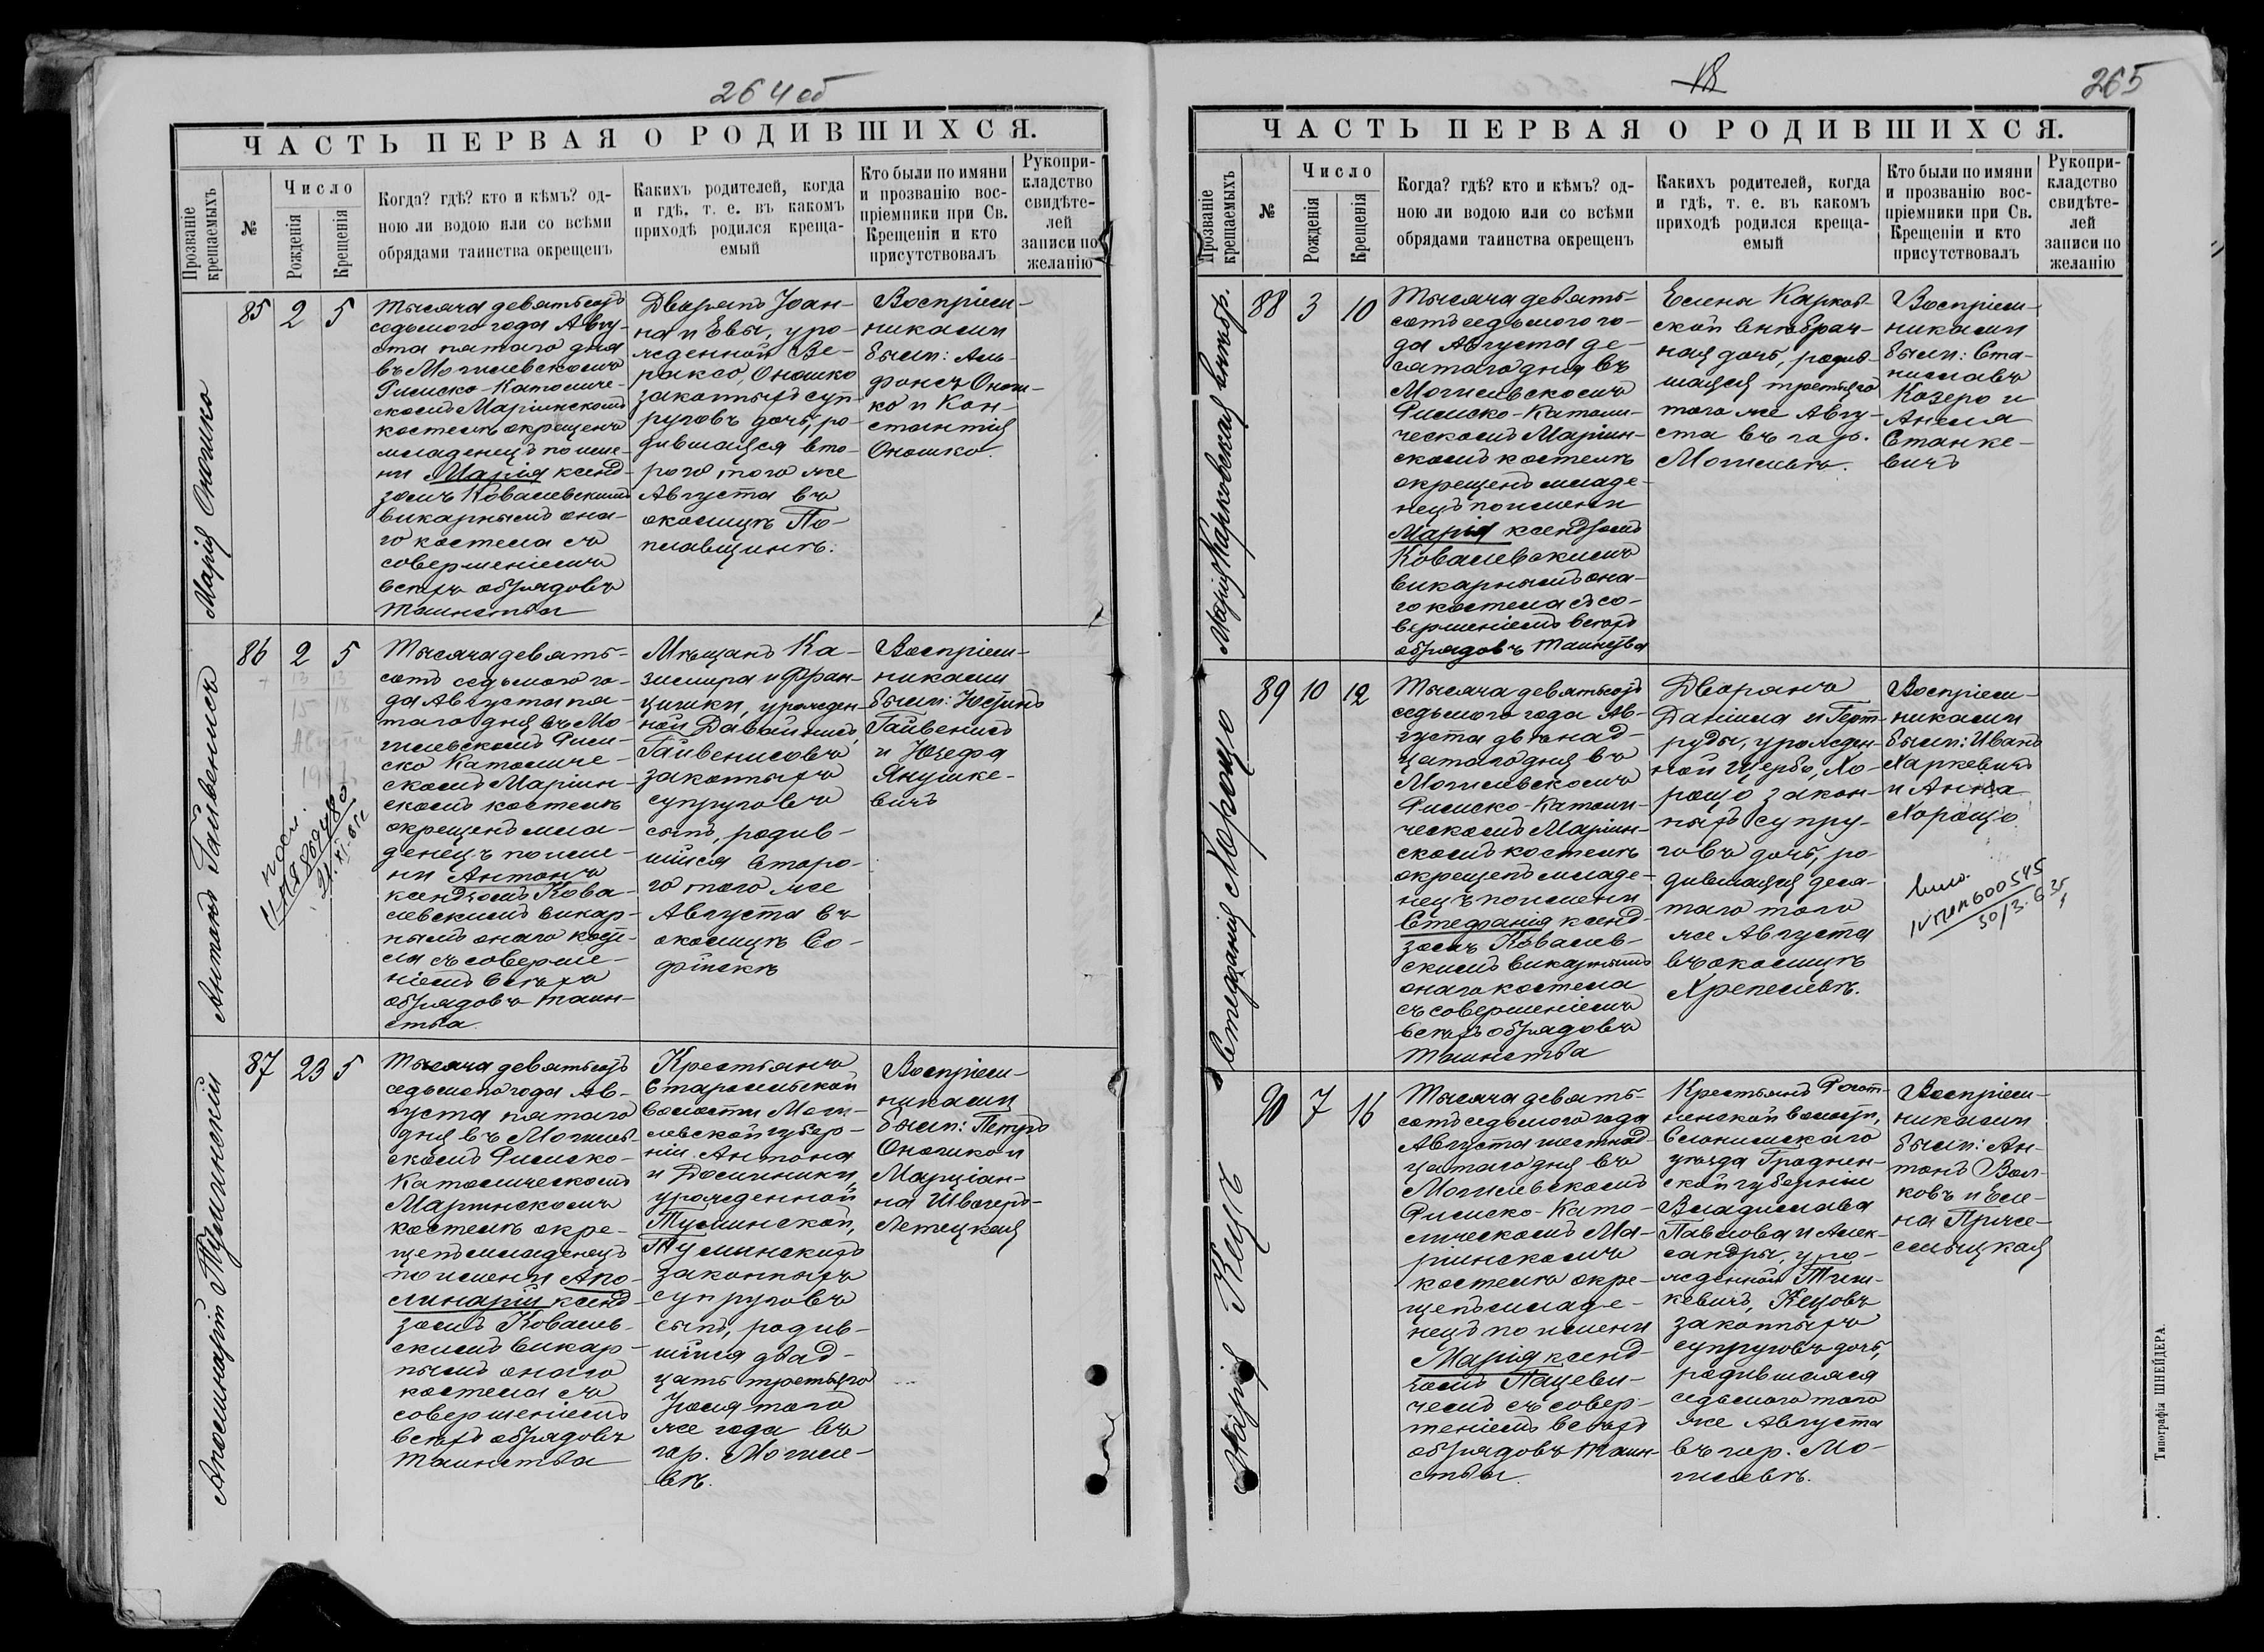 264 об
ЧАСТЬ ПЕРВАЯ О РОДИВШИХСЯ.
Прозваніе крещаемыхъ
№
Число
Рожденія
Крещенія
Когда? гдѣ? кто и кѣмъ? од-
ною ли водою или со всѣми
обрядами таинства окрещенъ
Какихъ родителей, когда
и гдѣ, т. е. въ какомъ
приходѣ родился креща-
емый
Кто были по имяни
и прозванію вос-
пріемники при Св.
Крещеніи и кто
присутствовалъ
Рукопри-
кладство
свидѣте-
лей
записи по
желанію
Марія Оношко
85 2 5
Тысяча девятьсотъ
седьмого года Авгу-
ста пятаго дня
въ Могилевскомъ
Римско-Католиче-
скомъ Маріинскомъ
костелѣ окрещенъ
младенецъ по име-
ни Марія ксенд-
зомъ Ковалевскимъ
викарнымъ она-
го костела съ
совершеніемъ
всѣхъ обрядовъ
Таинства
Дворянъ Іоан-
на и Евы, уро-
жденной Ве-
раксо, Оношко
законныхъ суп-
руговъ дочь, ро-
дившаяся вто-
рого того же
Августа въ
околицѣ По-
плавщинѣ.
Воспріем-
никами
были: Аль-
фонсъ Онош-
ко и Кон-
стантія
Оношко.
Антонъ Гайвенисъ
86 2 5
Тысяча девять-
сотъ седьмого го-
да Августа пя-
таго дня въ Мо-
гилевскомъ Рим-
ско Католиче-
скомъ Маріин-
скомъ костелѣ
окрещенъ мла-
денецъ по име-
ни Антонъ
ксендзомъ Кова-
левскимъ викар-
нымъ онаго косте-
ла съ соверше-
ніемъ всѣхъ
обрядовъ таин-
ства.
Мѣщанъ Ка-
зимира и Фран-
цишки, урожден-
ной Давайнисъ,
Гайвенисовъ
законныхъ
супруговъ
сынъ, родив-
шійся второ-
го того же
Августа въ
околицѣ Со-
фійскѣ
Воспріем-
никами
были: Юстинъ
Гайвенисъ
и Юзефа
Янушке-
вичъ
Августа
Аполинарій Тулинскій
87 23 5
Тысяча девятьсотъ
седьмого года Ав-
густа пятаго
дня въ Могилев-
скомъ Римско-
Католическомъ
Маріинскомъ
костелѣ окре-
щенъ младенецъ
по имени Апо-
линарій ксенд-
зомъ Ковалев-
скимъ викар-
нымъ онаго
костела съ
совершеніемъ
всѣхъ обрядовъ
Таинства
Крестьянъ
Старосельской
волости Моги-
левской губер-
ніи Антона
и Доминики,
урожденной
Тулинской,
Тулинскихъ
законныхъ
супруговъ
сынъ, родив-
шійся двад-
цать третьяго
Іюля того
же года въ
гор. Могиле-
вѣ.
Воспріем-
никами
были: Петръ
Оношко и
Марціан-
на Швогерь-
Летецкая
18
265
ЧАСТЬ ПЕРВАЯ О РОДИВШИХСЯ.
Прозваніе крещаемыхъ
№
Число
Рожденія
Крещенія
Когда? гдѣ? кто и кѣмъ? од-
ною ли водою или со всѣми
обрядами таинства окрещенъ
Какихъ родителей, когда
и гдѣ, т. е. въ какомъ
приходѣ родился креща-
емый
Кто были по имяни
и прозванію вос-
пріемники при Св.
Крещеніи и кто
присутствовалъ
Рукопри-
кладство
свидѣте-
лей
записи по
желанію
Марія Карковская внѣбр.
88 3 10
Тысяча девять-
сотъ седьмого го-
да Августа де-
сятаго дня въ
Могилевскомъ
Римско-Католи-
ческомъ Маріин-
скомъ костелѣ
окрещенъ младе-
нецъ по имени
Марія ксендзомъ
Ковалевскимъ
викарнымъ она-
го костела съ со-
вершеніемъ всѣхъ
обрядовъ Таинства
Елены Карков-
ской внѣбрач-
ная дочь, родив-
шаяся третьяго
того же Авгу-
ста въ гор.
Могилевѣ.
Воспріем-
никами
были: Ста-
ниславъ
Козеро и
Анеля
Станке-
вичъ
Стефанія Хорощо
89 10 12
Тысяча девятьсотъ
седьмого года Ав-
густа двѣнад-
цатаго дня въ
Могилевскомъ
Римско-Католи-
ческомъ Маріин-
скомъ костелѣ
окрещенъ младе-
нецъ по имени
Стефанія ксенд-
зомъ Ковалев-
скимъ викарнымъ
онаго костела
съ совершеніемъ
всѣхъ обрядовъ
Таинства
Дворянъ
Даніила и Герт-
руды, урожден-
ной Щербо, Хо-
рощо закон-
ныхъ супру-
говъ дочь, ро-
дившаяся деся-
таго того
же Августа
въ околицѣ
Хрепелевѣ.
Воспріем-
никами
были: Иванъ
Харкевичъ
и Анна
Хорощо
Марія Кецъ
90 7 16
Тысяча девять-
сотъ седьмого года
Августа шестнад-
цатаго дня въ
Могилевскомъ
Римско-Като-
лическомъ Ма-
ріинскомъ
костелѣ окре-
щенъ младе-
нецъ по имени
Марія ксенд-
зомъ Пацеви-
чемъ съ совер-
шеніемъ всѣхъ
обрядовъ Таин-
ства.
Крестьянъ Рот-
ненской волости,
Слонимскаго
уѣзда Гроднен-
ской губерніи
Владислава
Павлова и Алек-
сандры, уро-
жденной Тиш-
кевичъ, Кецовъ
законныхъ
супруговъ дочь,
родившаяся
седьмого того
же Августа
въ гор. Мо-
гилевѣ.
Воспріем-
никами
были: Ан-
тонъ Вол-
ковъ и Еле-
на Прже-
смыцкая
Типографія ШНЕЙДЕРА.